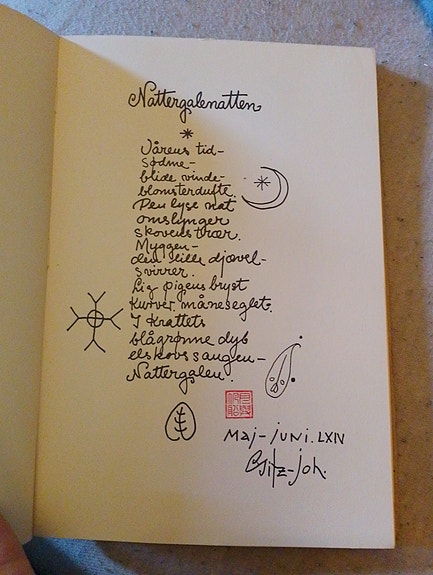 Nattergalenatten
*
Vårens tid-
sødme-
blide vinde-
blomsterdufte.
Den lyse nat
omslynger
skovens træer.
Myggen-
den lille djævel-
svirrer.
Lig pigens bryst
kurver måneseglet.
I krattets
blågrønne dyb
elskovssangen-
Nattergalen.
Maj-juni.LXIV
Gitz-Joh.